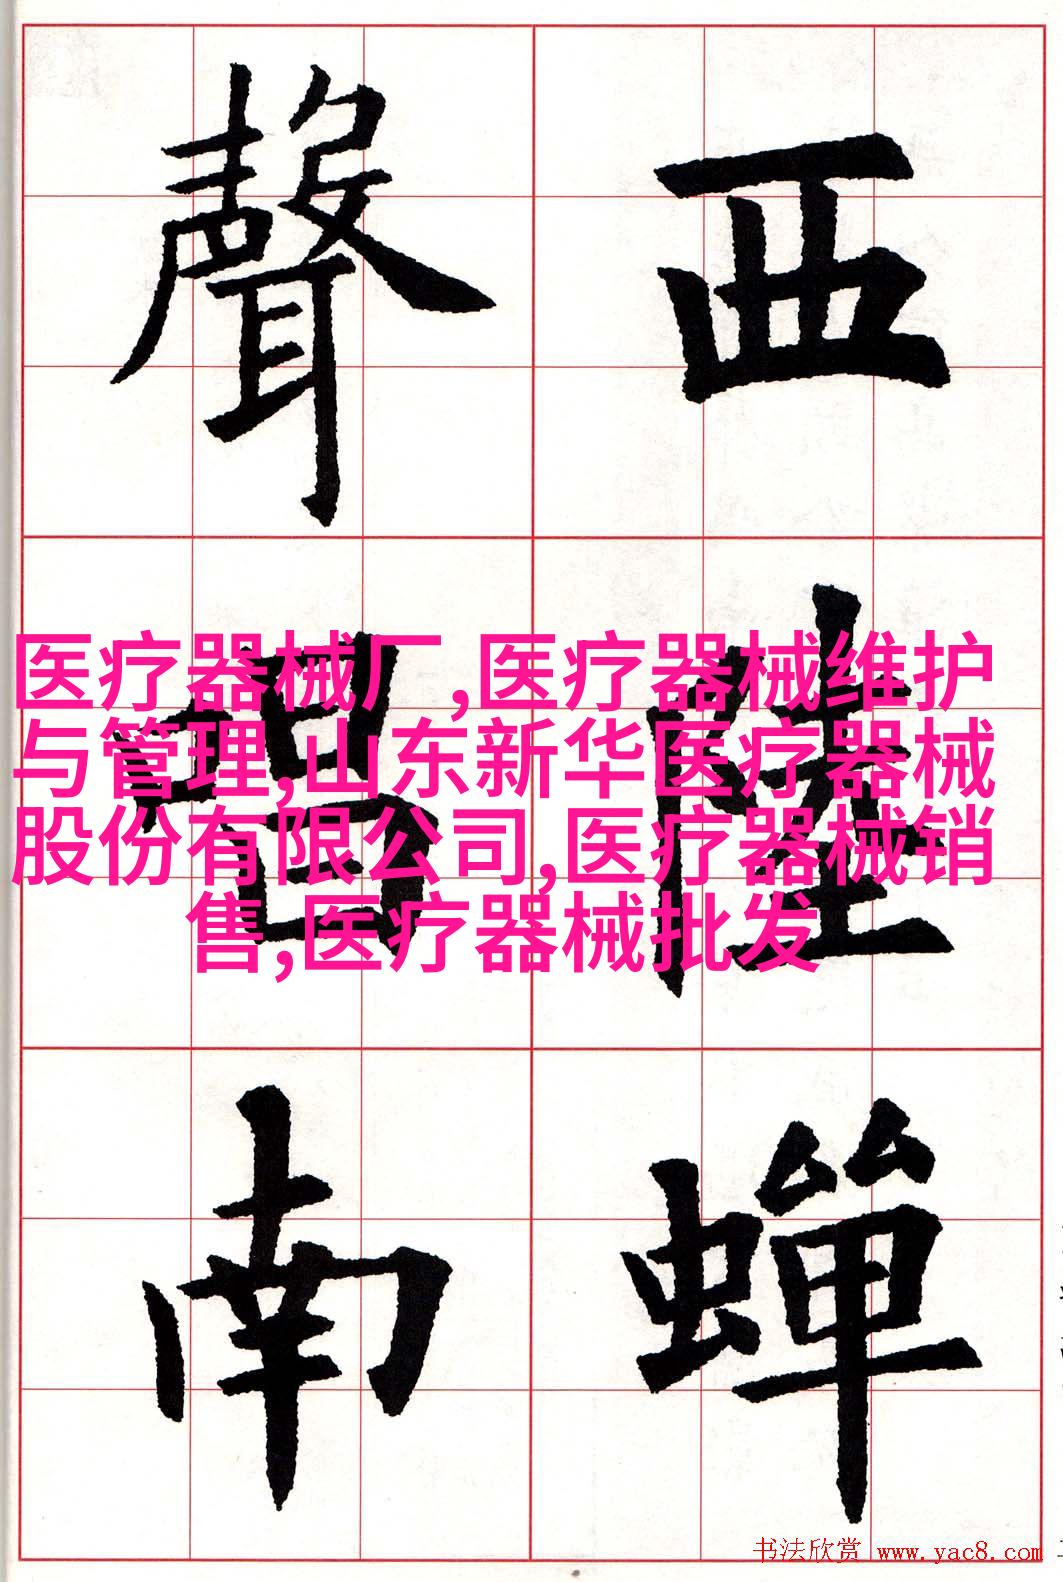 西陸蟬
聲唱南
医疗器械厂,医疗器械维护
与管理,山东新华医疗器械
股份有限公司,医疗器械销
售,医疗器械批发
书法欣赏 www.yac8.com